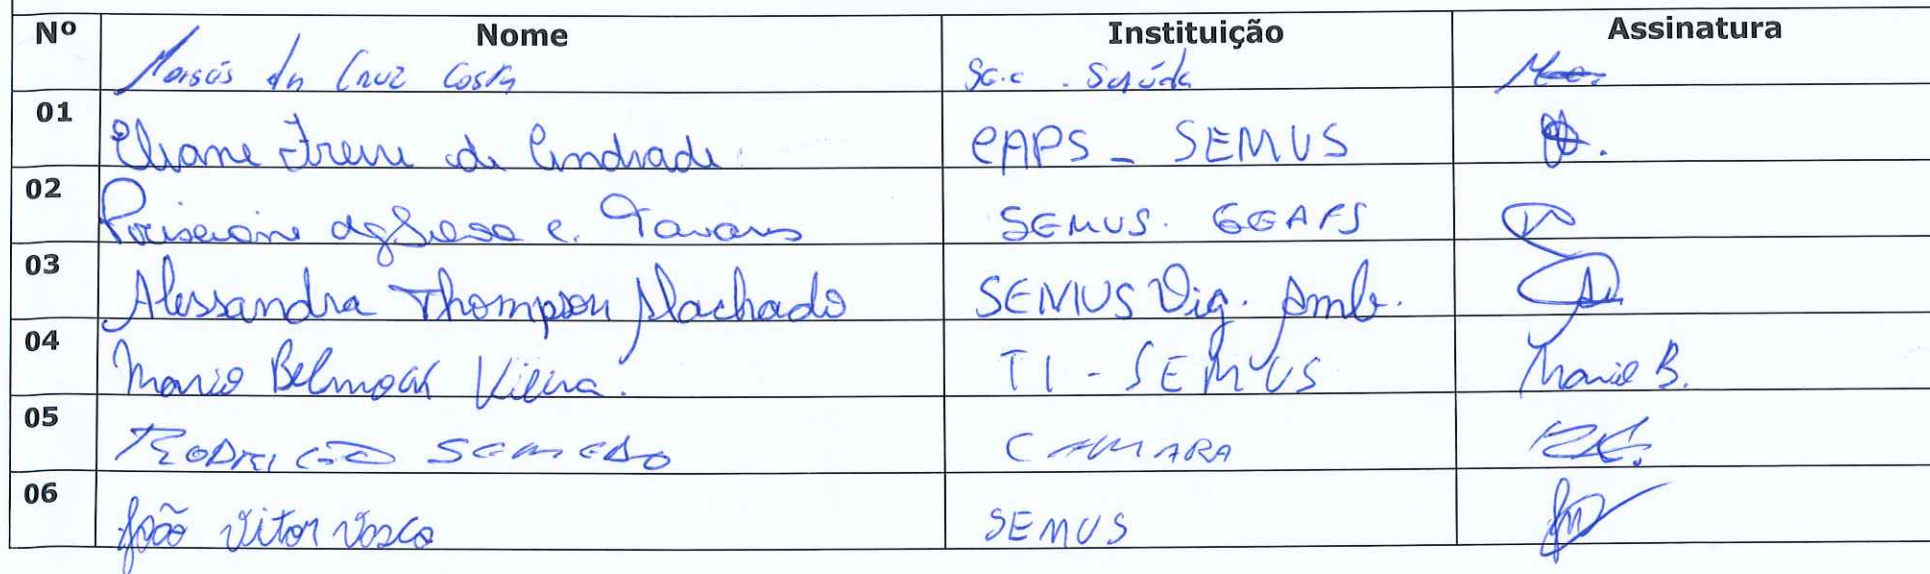 Nº Nome Instituição Assinatura
Moisés da Cruz Costa Sec. Saúde
01 Eliane Freire de Andrade. CAPS - SEMUS
02 da e. Tavares SEMUS. GEAFS
03 Alessandra Thompson Machado SEMUS Vig. Amb.
04 Mario Belmock Vieira. TI - SEMUS Mario B.
05 RODRIGO SEMEDO CAMARA
06 João Vitor Vasco SEMUS